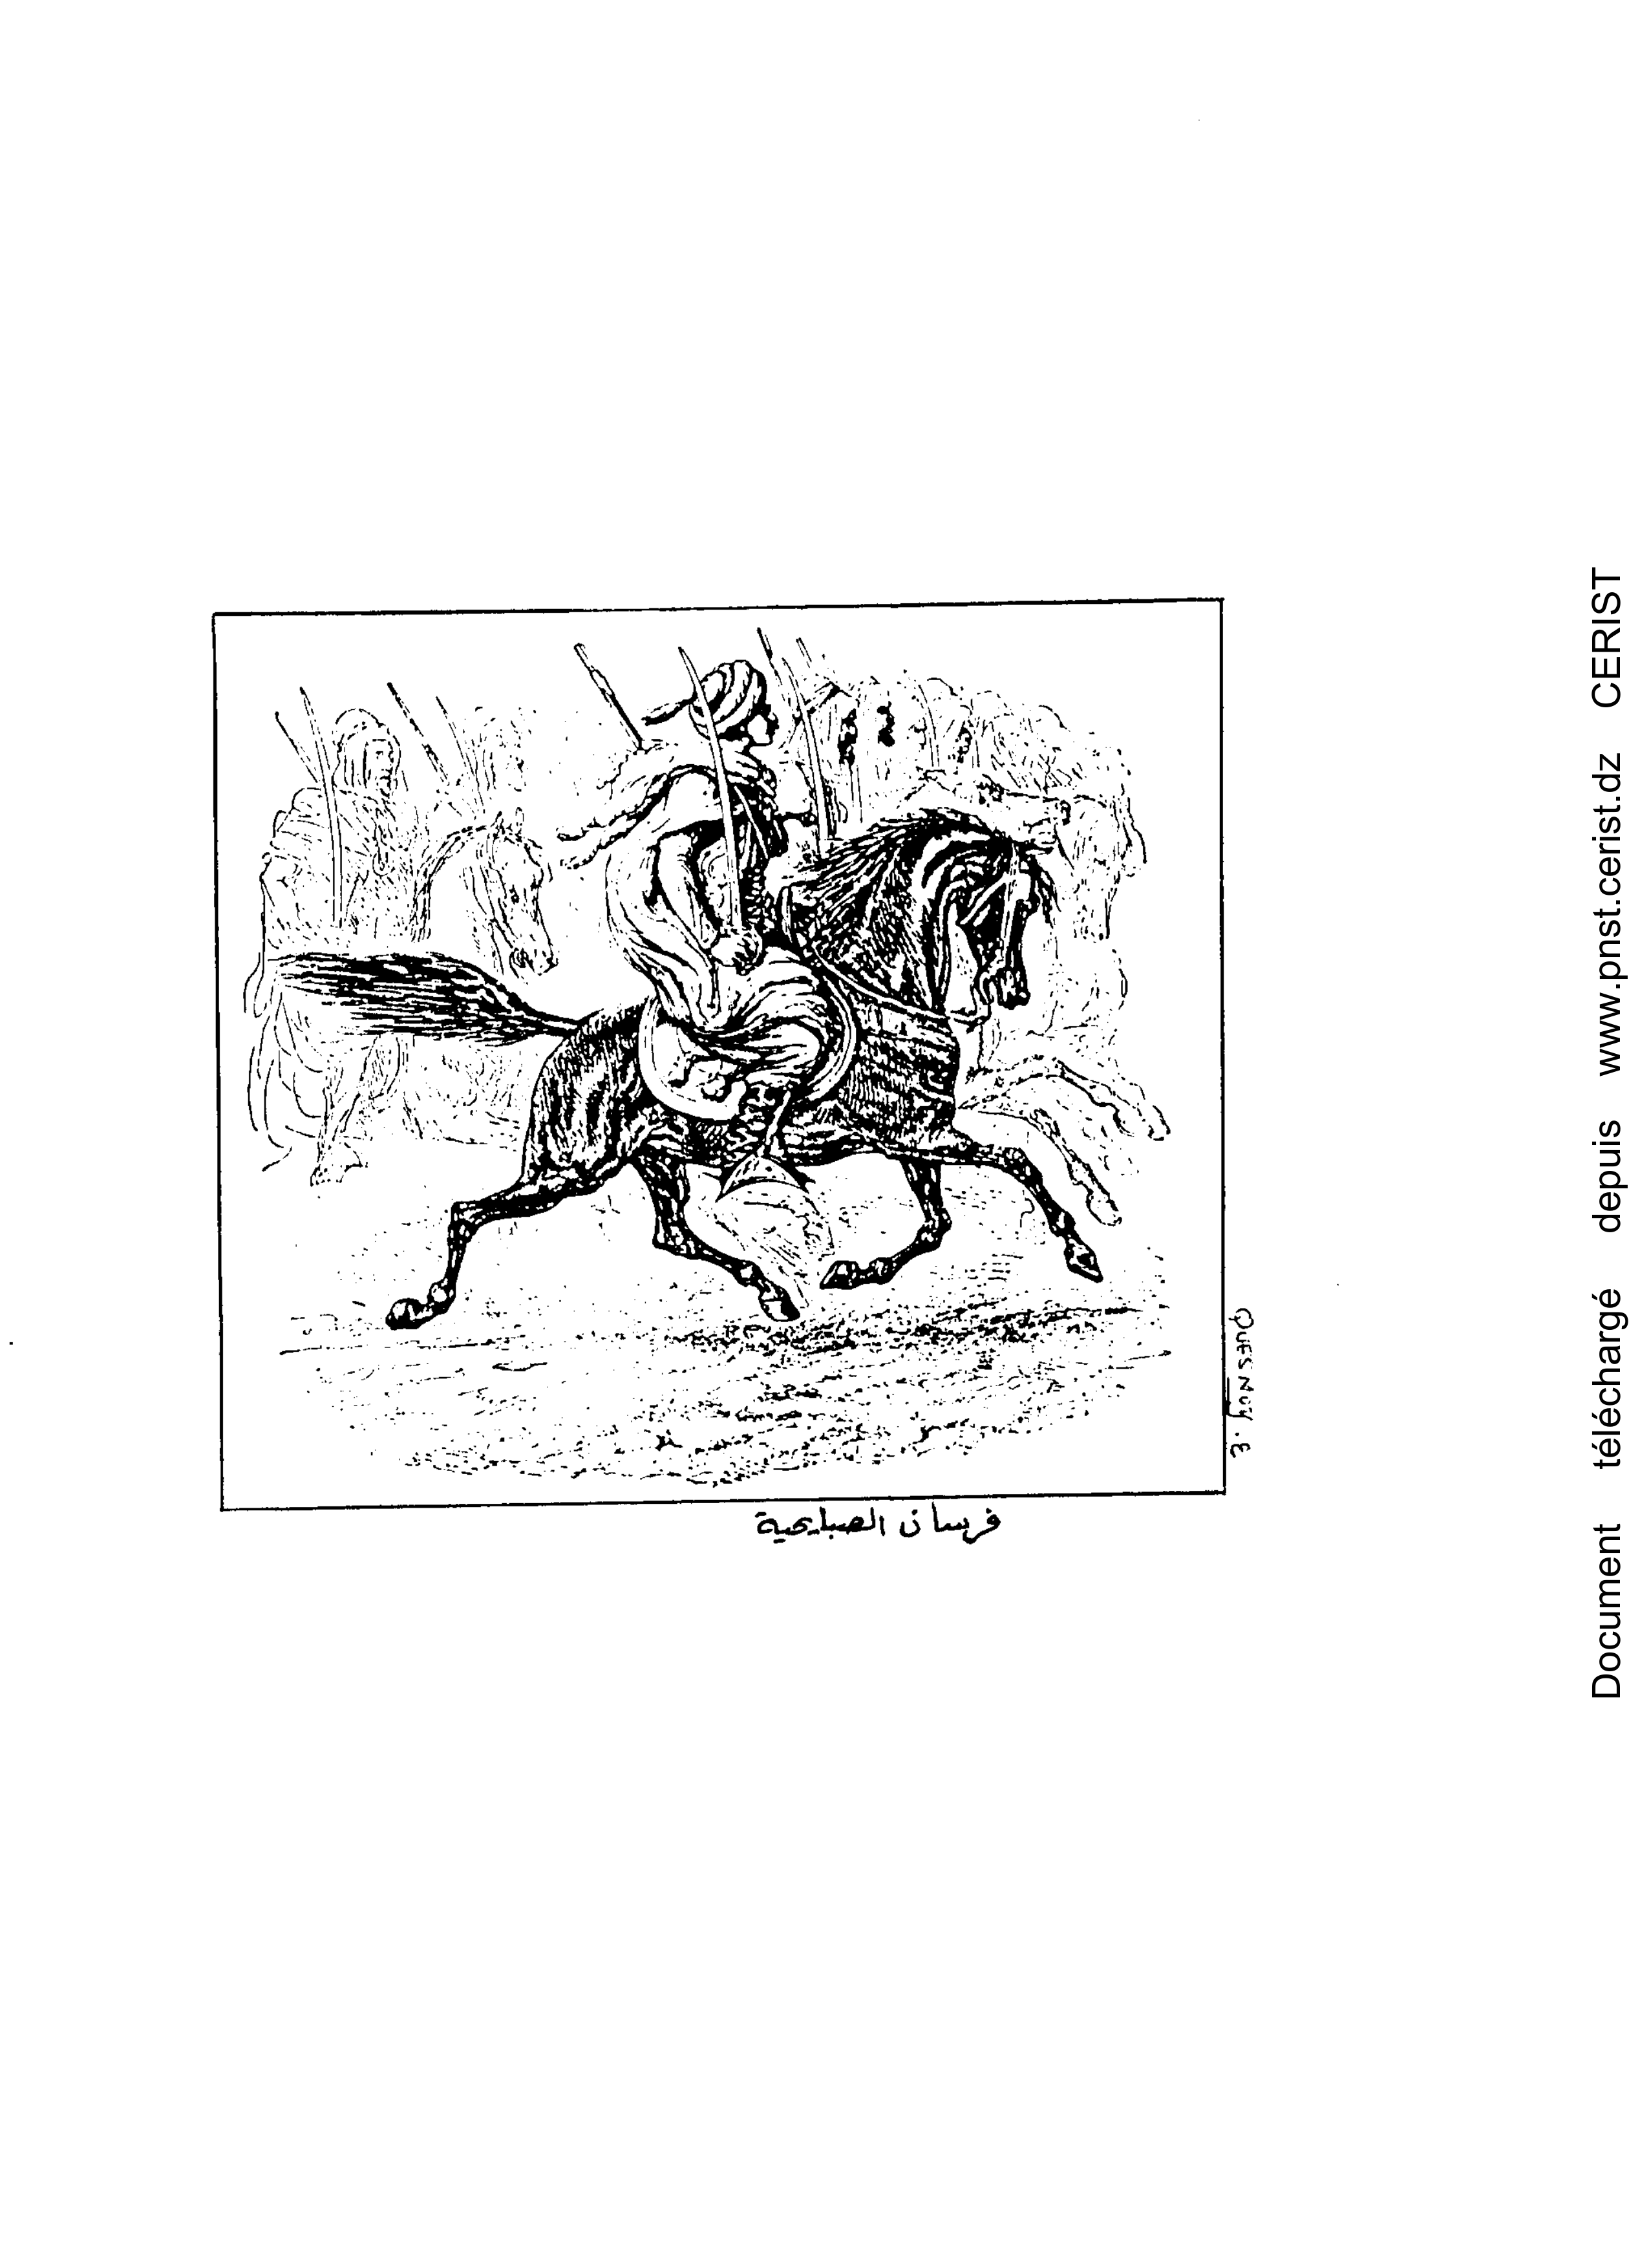 QUESNOY. E
فرسان الصبايحية
Document téléchargé depuis www.pnst.cerist.dz CERIST